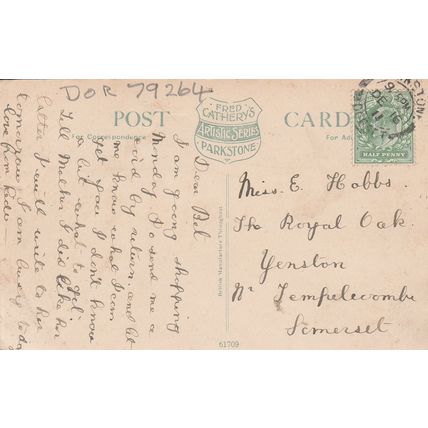 DOR 79264
POST
CARD
FRED
CATHERY'S
ARTISTIC SERIES
PARKSTONE
For Correspondence
For Ad
Dear Bel
I am going shopping
Monday so send me a
card by return and let
me know what I can
get you I don't know
a bit what to get
Tell Mother I did like her
letter I will write to her
tomorrow I am busy today
love from
Miss. E. Hobbs.
The Royal Oak
Yenston
Nr Templecombe
Somerset
British Manufacture Throughout
61709
HALF PENNY
DE 16
11